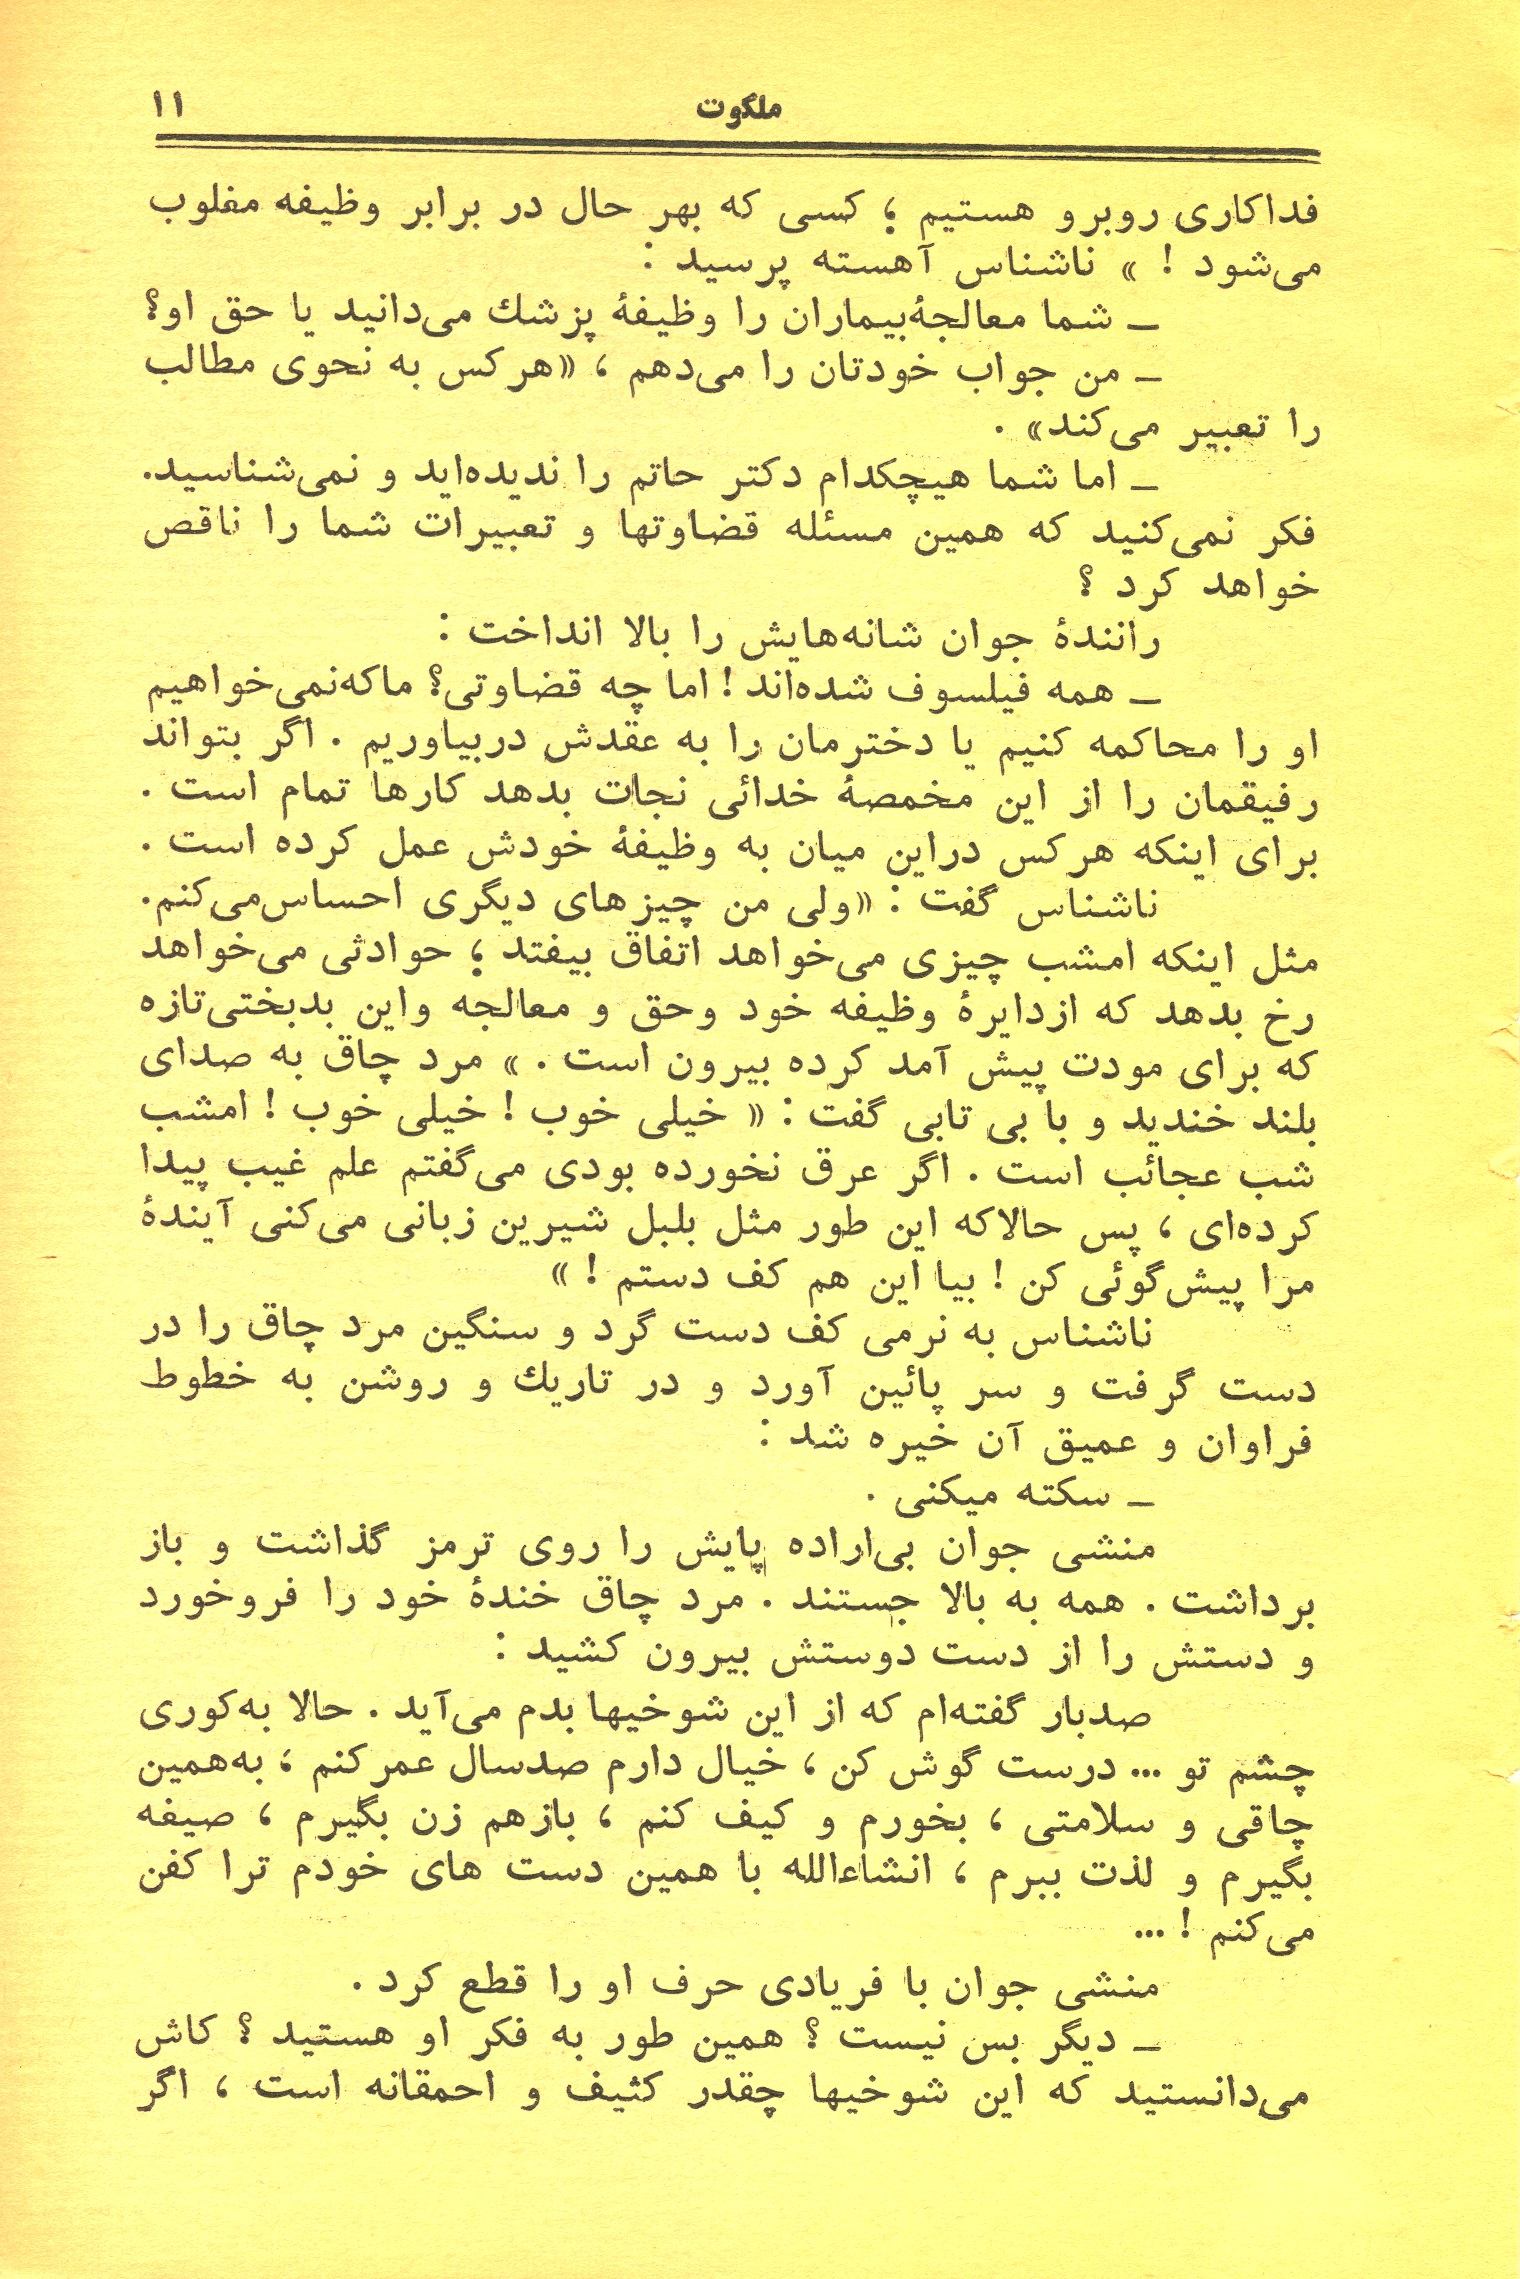 ملکوت ۱۱
فداکاری روبرو هستیم ؛ کسی که بهر حال در برابر وظیفه مغلوب
می‌شود ! » ناشناس آهسته پرسید :
ـ شما معالجهٔ‌بیماران را وظیفهٔ پزشك می‌دانید یا حق او؟
ـ من جواب خودتان را می‌دهم ، «هرکس به نحوی مطالب
را تعبیر می‌کند» .
ـ اما شما هیچکدام دکتر حاتم را ندیده‌اید و نمی‌شناسید.
فکر نمی‌کنید که همین مسئله قضاوتها و تعبیرات شما را ناقص
خواهد کرد ؟
رانندهٔ جوان شانه‌هایش را بالا انداخت :
ـ همه فیلسوف شده‌اند ! اما چه قضاوتی؟ ماکه‌نمی‌خواهیم
او را محاکمه کنیم یا دخترمان را به عقدش دربیاوریم . اگر بتواند
رفیقمان را از این مخمصهٔ خدائی نجات بدهد کارها تمام است .
برای اینکه هرکس دراین میان به وظیفهٔ خودش عمل کرده است .
ناشناس گفت : «ولی من چیزهای دیگری احساس‌می‌کنم.
مثل اینکه امشب چیزی می‌خواهد اتفاق بیفتد ؛ حوادثی می‌خواهد
رخ بدهد که ازدایرهٔ وظیفه خود وحق و معالجه واین بدبختی‌تازه
که برای مودت پیش آمد کرده بیرون است . » مرد چاق به صدای
بلند خندید و با بی تابی گفت : « خیلی خوب ! خیلی خوب ! امشب
شب عجائب است . اگر عرق نخورده بودی می‌گفتم علم غیب پیدا
کرده‌ای ، پس حالاکه این طور مثل بلبل شیرین زبانی می‌کنی آیندهٔ
مرا پیش‌گوئی کن ! بیا این هم کف دستم ! »
ناشناس به نرمی کف دست گرد و سنگین مرد چاق را در
دست گرفت و سر پائین آورد و در تاریك و روشن به خطوط
فراوان و عمیق آن خیره شد :
ـ سکته میکنی .
منشی جوان بی‌اراده پایش را روی ترمز گذاشت و باز
برداشت . همه به بالا جستند . مرد چاق خندهٔ خود را فروخورد
و دستش را از دست دوستش بیرون کشید :
صدبار گفته‌ام که از این شوخیها بدم می‌آید . حالا به‌کوری
چشم تو ... درست گوش کن ، خیال دارم صدسال عمرکنم ، به‌همین
چاقی و سلامتی ، بخورم و کیف کنم ، بازهم زن بگیرم ، صیغه
بگیرم و لذت ببرم ، انشاءالله با همین دست های خودم ترا کفن
می‌کنم ! ...
منشی جوان با فریادی حرف او را قطع کرد .
ـ دیگر بس نیست ؟ همین طور به فکر او هستید ؟ کاش
می‌دانستید که این شوخیها چقدر کثیف و احمقانه است ، اگر